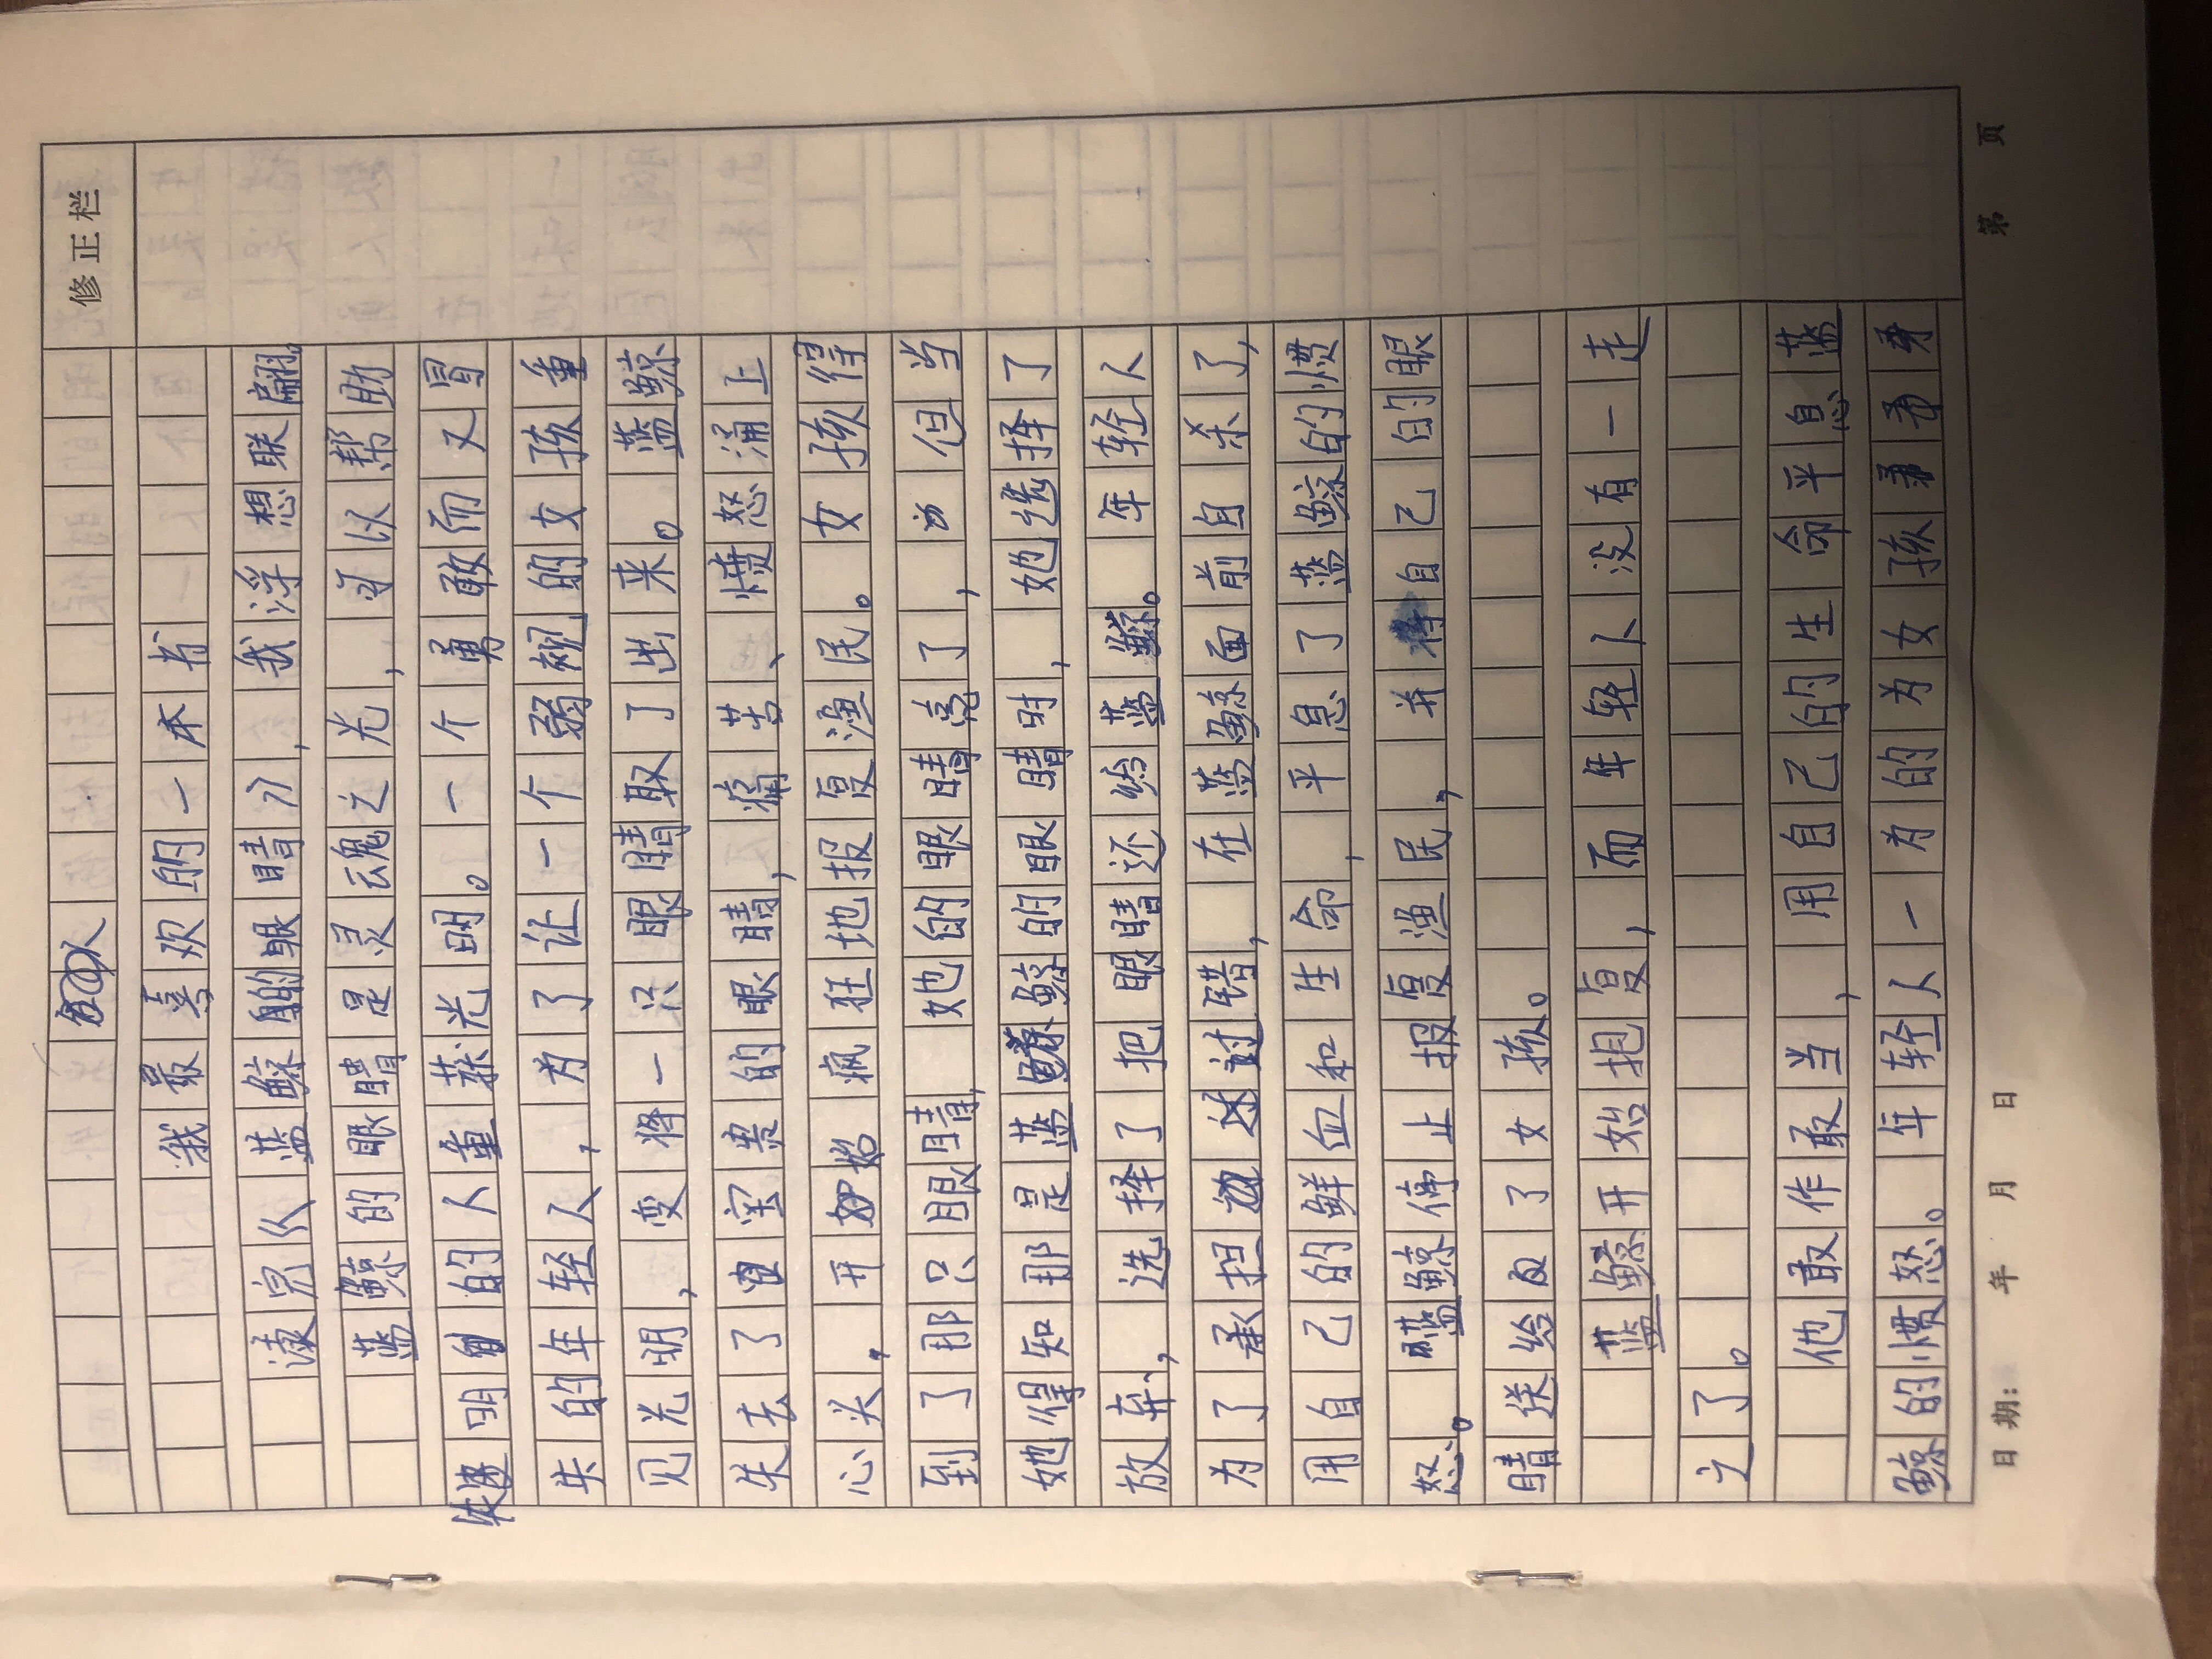 修正栏
人
我最喜欢的一本书
读完《蓝鲸的眼睛》，我浮想联翩。
蓝鲸的眼睛是灵魂之光，可以帮助
失明的人重获光明。一个勇敢而又冒
失的年轻人，为了让一个弱视的女孩重
见光明，变将一只眼睛取了出来。蓝鲸
失去了宝贵的眼睛，痛苦、愤怒涌上
心头，开始疯狂地报复渔民。女孩得
到了那只眼睛，她的眼睛亮了，但当
她得知那是蓝鲸的眼睛时，她选择了
放弃，选择了把眼睛还给蓝鲸。年轻人
为了承担过错，在蓝鲸面前自杀了，
用自己的鲜血和生命，平息了蓝鲸的愤
怒。蓝鲸停止报复渔民，并将自己的眼
睛送给了女孩。
蓝鲸开始抱复，而年轻人没有一走
之了。
他敢作敢当，用自己的生命平息蓝
鲸的愤怒。年轻人一为的为女孩
日期： 年 月 日 第 页